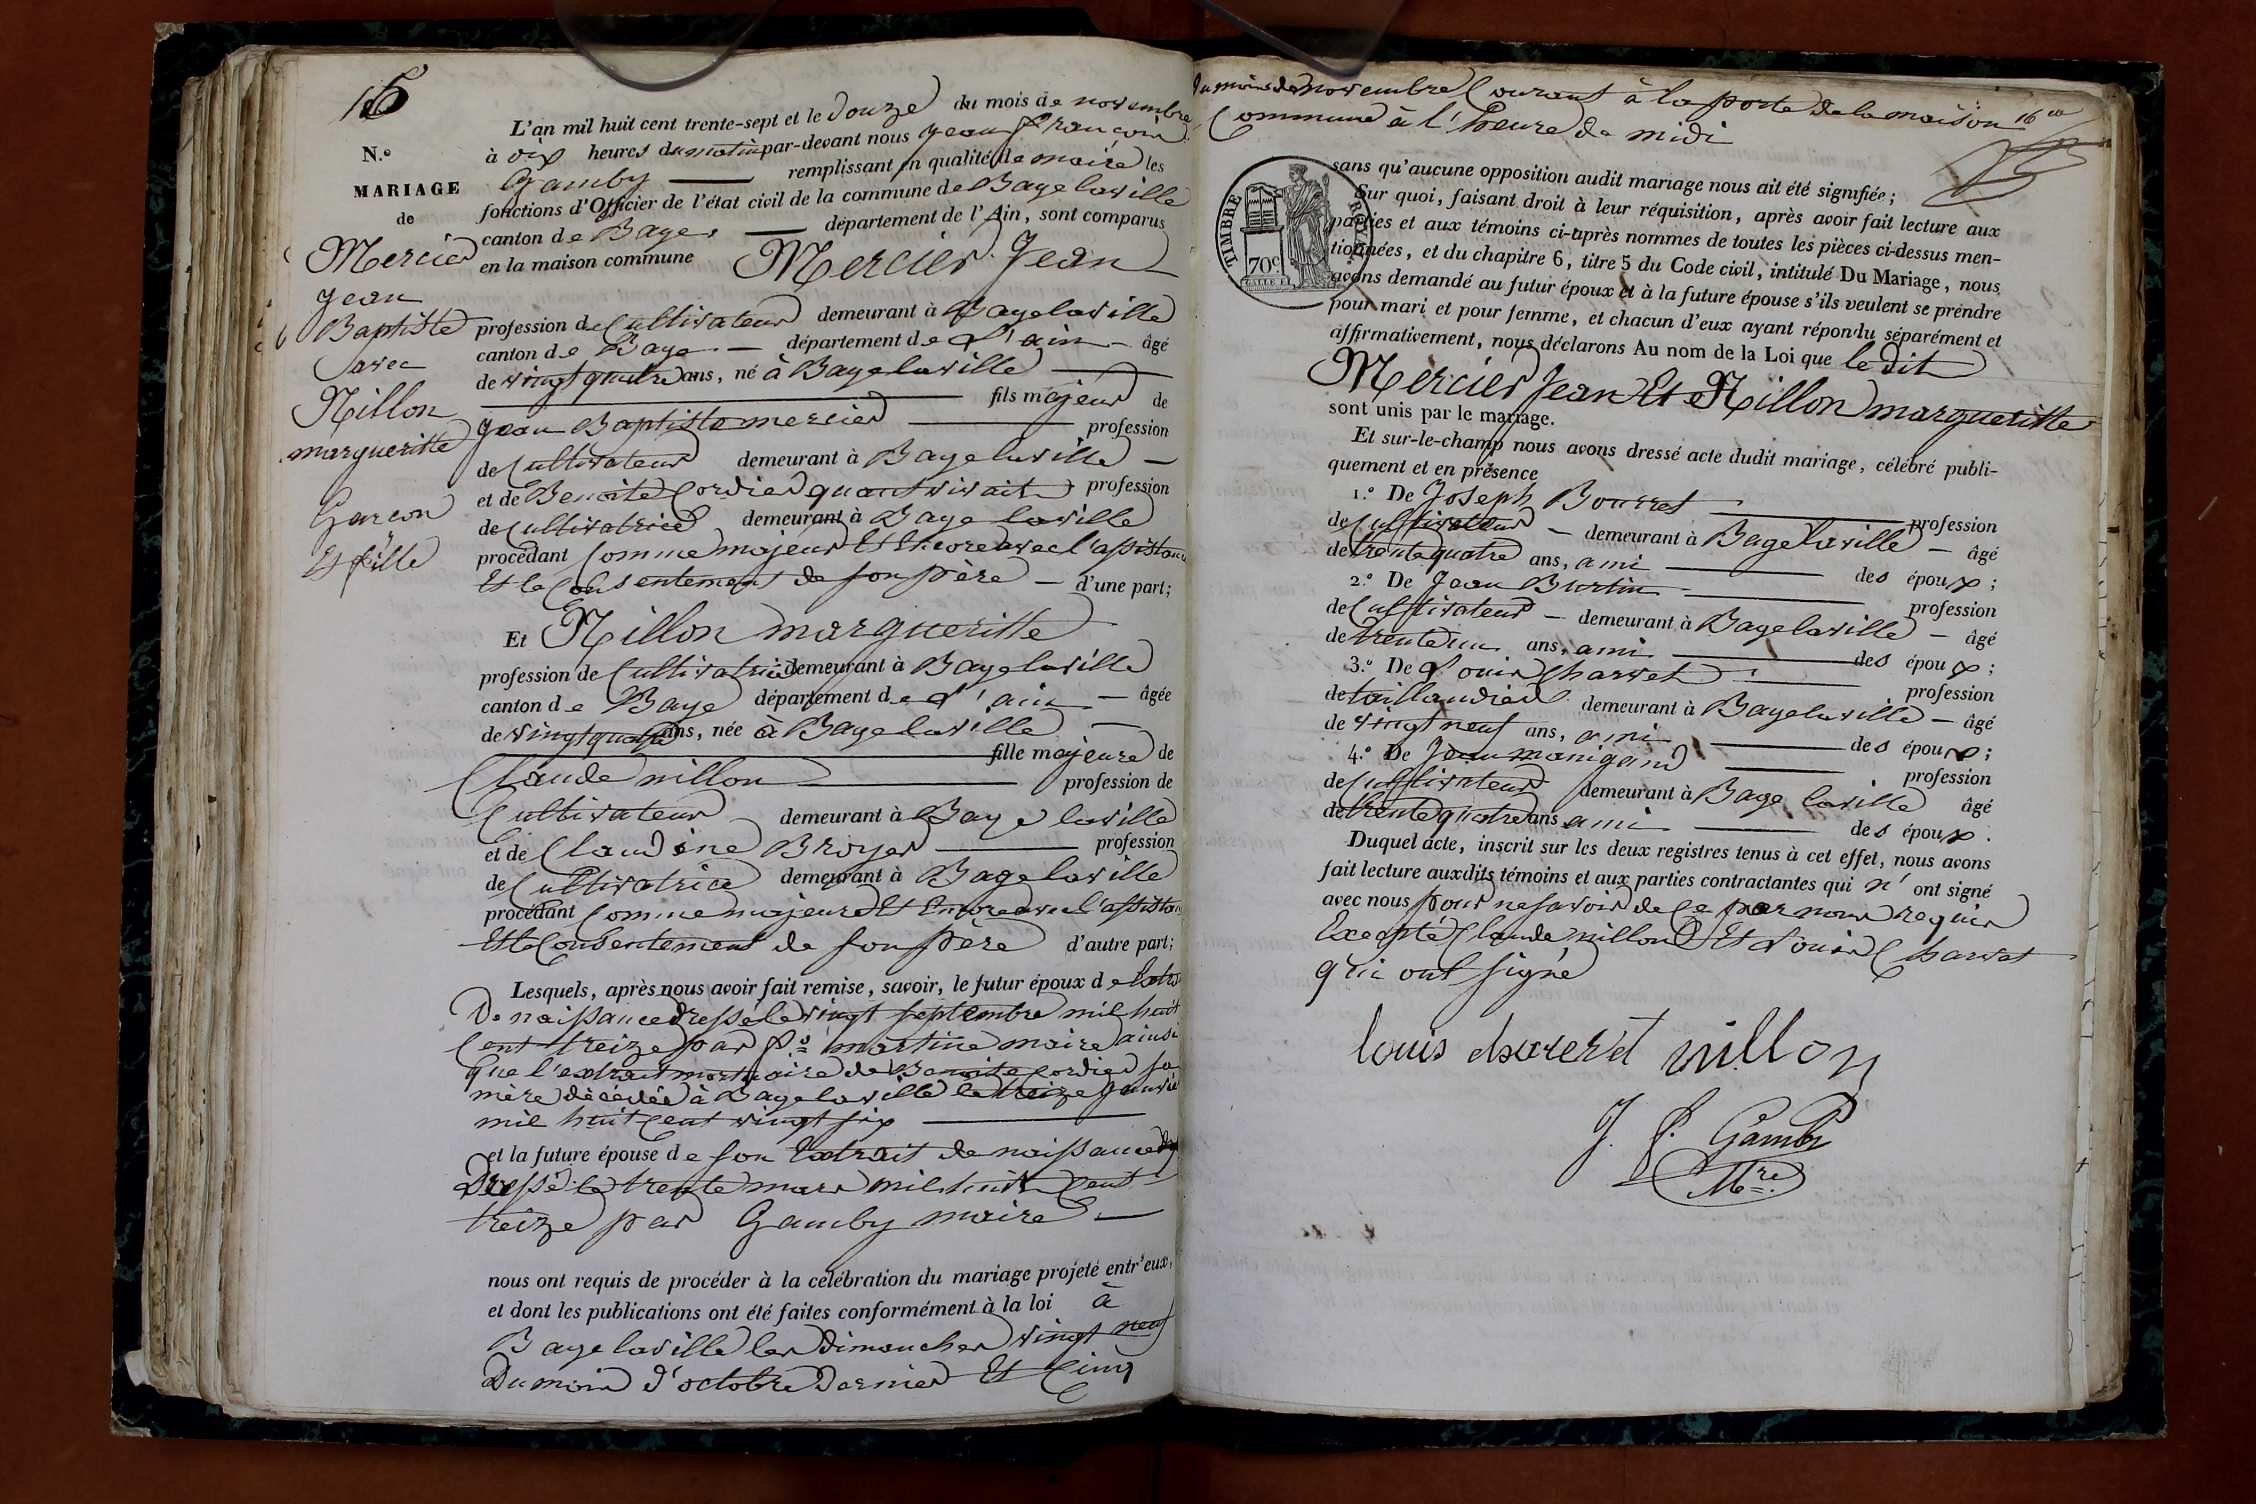 16
N.º
MARIAGE
de
Mercier
Jean
Baptiste
avec
Nillon
margueritte
Garcon
Et fille
L'an mil huit cent trente-sept et le Douze du mois de novembre
à dix heures du matin par-devant nous Jean François
Gamby remplissant en qualité de maire les
fonctions d'Officier de l'état civil de la commune de Bage laville
canton de Bage département de l'Ain, sont comparus
en la maison commune Mercier Jean
profession de Cultivateur demeurant à Bagelaville
canton de Bage département de L'ain âgé
de vingt quatre ans, né à Bagelaville
fils majeur de
Jean Baptiste mercier profession
de Cultivateur demeurant à Bagelaville
et de Benoite Cordier quant vivait profession
de Cultivatrice demeurant à Bage laville
procédant Comme majeur Et Encore avec l'assistance
Et le Consentement de son père d'une part;
Et Nillon margueritte
profession de Cultivatrice demeurant à Bagelaville
canton de Bage département de L'ain âgée
de vingt quatre ans, née à Bagelaville
fille majeure de
Claude nillon profession de
Cultivateur demeurant à Bage laville
et de Claudine Broyer profession
de Cultivatrice demeurant à Bage laville
procédant Comme majeure Et Encore avec l'assistance
Et le Consentement de son père d'autre part;
Lesquels, après nous avoir fait remise, savoir, le futur époux de Extrait
De naissance Dressé le vingt septembre mil huit
Cent treize par martine maire ainsi
que l'extrait mortuaire de Benoite Cordier sa
mère décédée à Bagelaville le treize janvier
mil huit Cent vingt six
et la future épouse de son Extrait de naissance
Dressé le trente mars mil huit Cent
treize par Gamby maire
nous ont requis de procéder à la célébration du mariage projeté entr'eux,
et dont les publications ont été faites conformément à la loi à
Bage laville les Dimanches vingt neuf
Du mois d'octobre Dernier Et Cinq
Du mois de novembre Courant à la porte de la maison
Commune à l'heure de midi
16
TIMBRE ROYAL
70c
sans qu'aucune opposition audit mariage nous ait été signifiée;
Sur quoi, faisant droit à leur réquisition, après avoir fait lecture aux
parties et aux témoins ci-après nommés de toutes les pièces ci-dessus men-
tionnées, et du chapitre 6, titre 5 du Code civil, intitulé Du Mariage, nous
avons demandé au futur époux et à la future épouse s'ils veulent se prendre
pour mari et pour femme, et chacun d'eux ayant répondu séparément et
affirmativement, nous déclarons Au nom de la Loi que le Dit
Mercier Jean Et Nillon margueritte
sont unis par le mariage.
Et sur-le-champ nous avons dressé acte dudit mariage, célébré publi-
quement et en présence
1.º De Joseph Bourret profession
de Cultivateur demeurant à Bagelaville âgé
de trente quatre ans, ami des époux;
2.º De Jean Burtin profession
de Cultivateur demeurant à Bagelaville âgé
de trente un ans, ami des époux;
3.º De Louis Charvet profession
de taillandier demeurant à Bagelaville âgé
de vingt neuf ans, ami des époux;
4.º De Jean manigand profession
de Cultivateur demeurant à Bage laville âgé
de trente quatre ans ami des époux.
Duquel acte, inscrit sur les deux registres tenus à cet effet, nous avons
fait lecture auxdits témoins et aux parties contractantes qui n'ont signé
avec nous pour ne savoir de Ce par nous requis
Excepté Claude nillon Et Louis Charvet
qui ont signé
louis charvet nillon
J. f. Gamby
Mre